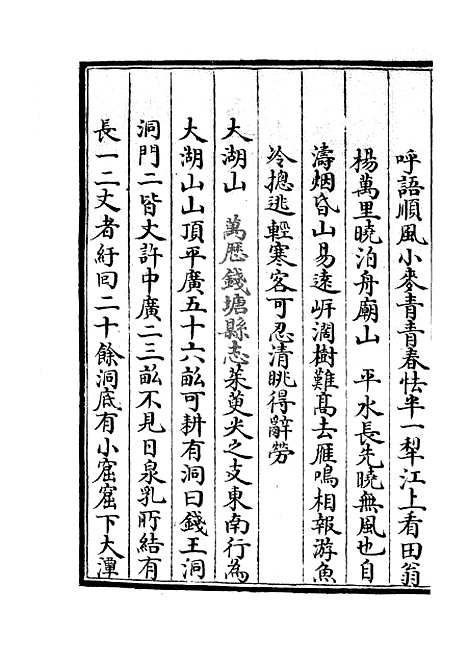 呼語順風小麥青青春怯半一犂江上看田翁
楊萬里曉泊舟廟山　平水長先曉無風也自
濤烟昏山易遠㟁濶樹難髙去雁鳴相報游魚
冷摠逃輕寒客可忍清眺得辭勞
大湖山　萬歷錢塘縣志萊㚑尖之支東南行為
大湖山山頂平廣五十六畝可耕有洞曰錢王洞
洞門二皆丈許中廣二三畝不見日泉乳所結有
長一二丈者紆囘二十餘洞底有小窟窟下大潭